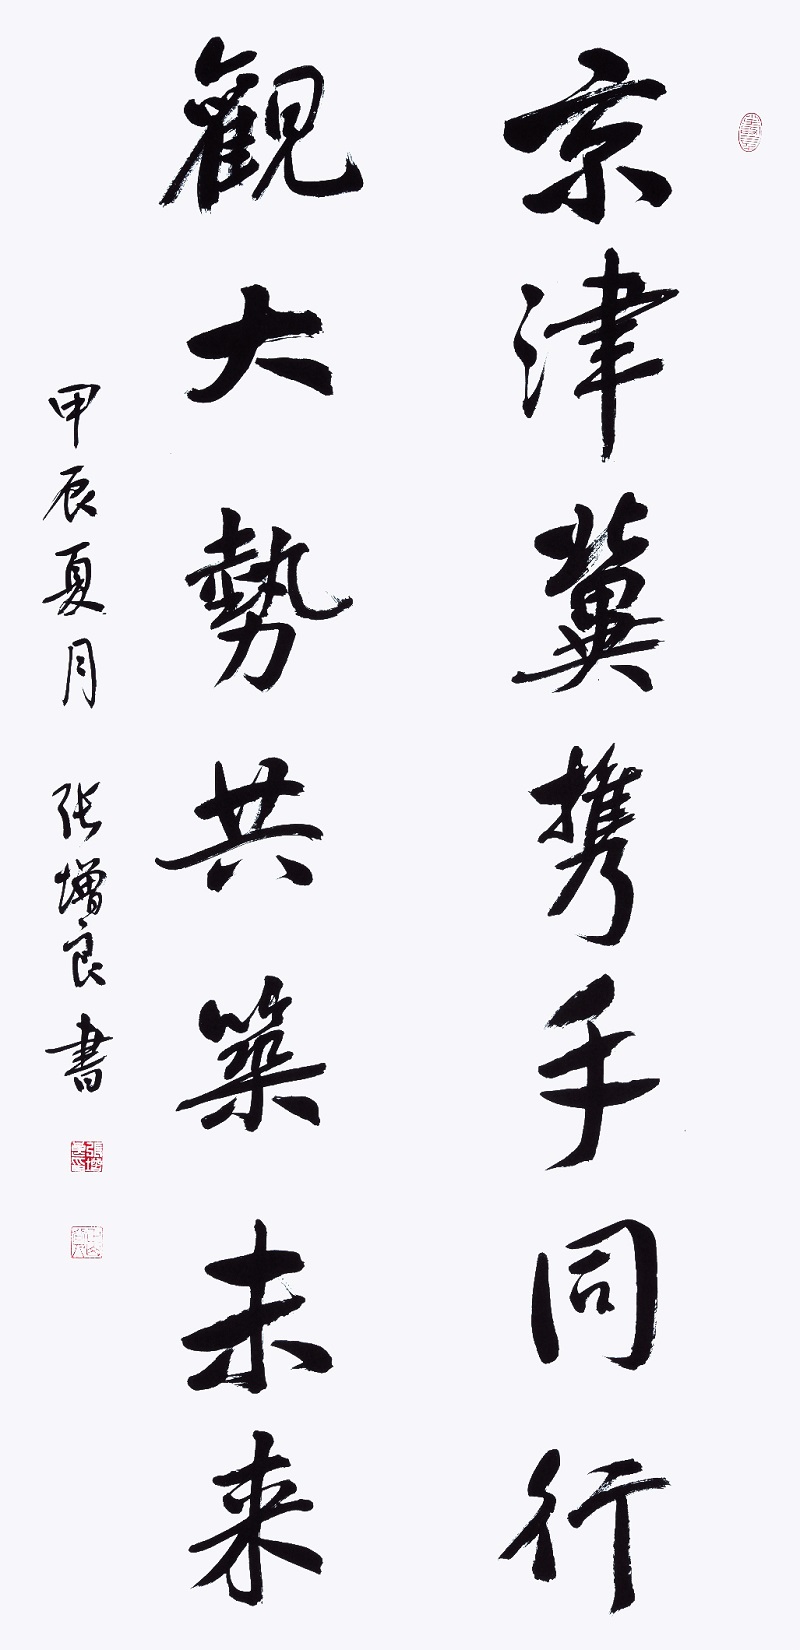 京津冀携手同行
觀大勢共築未来
甲辰夏月 张增良書